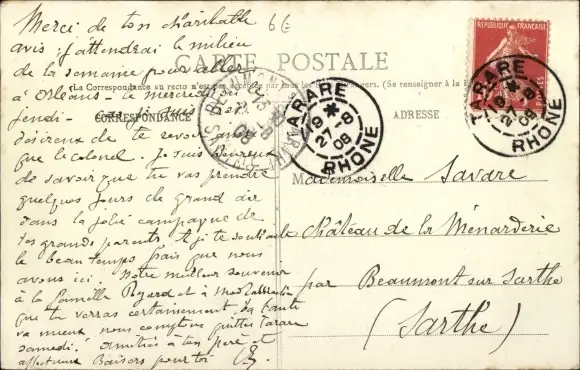 Merci de ton charitable
avis j'attendrai le milieu
de la semaine pour aller
à Orléans - le mercredi
jeudi - car je suis
désireux de te revoir
que le colonel. Je suis heureux
de savoir que tu vas prendre
quelques jours de grand air
dans la jolie campagne de
tes grands parents. Et je te souhaite
le beau temps frais que nous
avons ici. Notre meilleur souvenir
à la famille et à
que tu verras certainement. Ta tante
va mieux nous comptons quitter Tarare
samedi. Amitiés à ton père et
affectueux Baisers pour toi
6€
CARTE POSTALE
CORRESPONDANCE
ADRESSE
TARARE
19
27-8
08
RHONE
REPUBLIQUE FRANÇAISE
POSTES
TARARE
19
27-8
08
RHONE
Mademoiselle Savare
Château de la Ménarderie
par Beaumont sur Sarthe
(Sarthe)